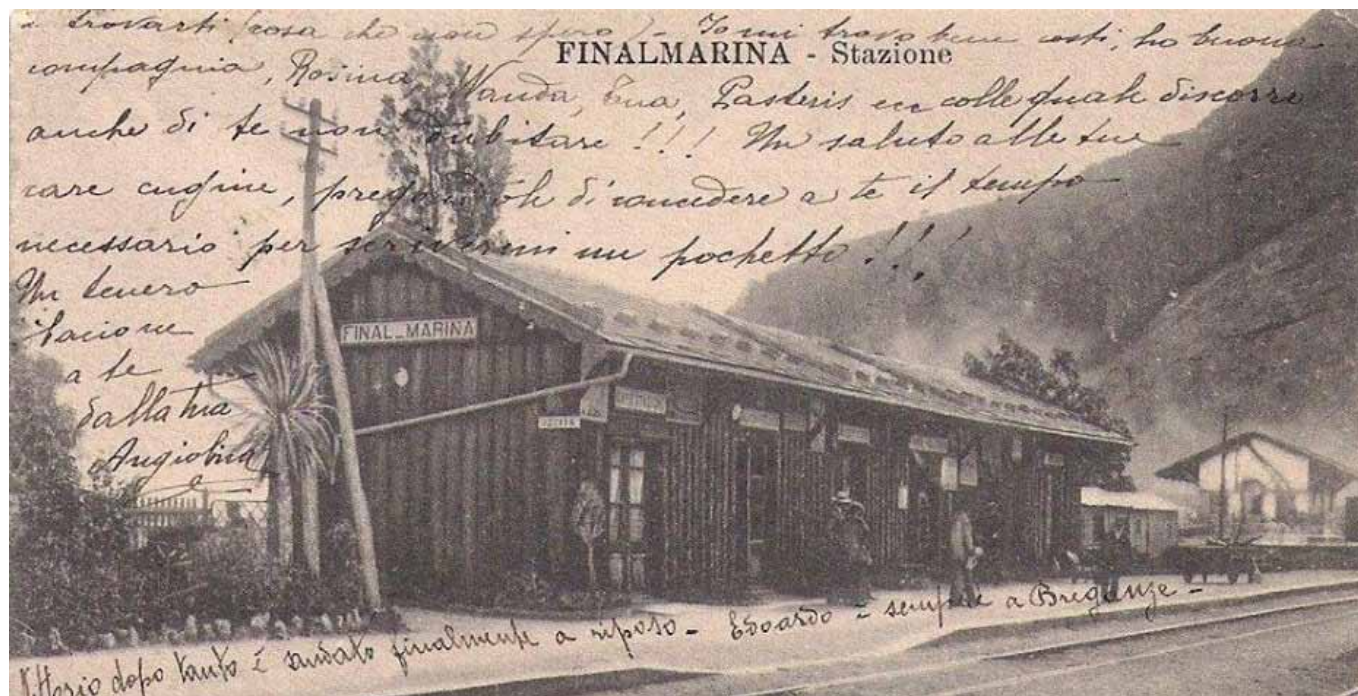 a trovarti (cosa che non spero) - Io mi trovo bene costì, ho buona
FINALMARINA - Stazione
compagnia, Rosina, Wanda, Ena, Pasteris ecc colle quali discorro
anche di te non dubitare !!! Un saluto alle tue
care cugine, pregandole di concedere a te il tempo
necessario per scrivermi un pochetto !!!
Un tenero
bacione
a te
dalla tua
Angiolina
FINAL-MARINA
USCITA
Vittorio dopo tanto è andato finalmente a riposo - Edoardo è sempre a Breganze -